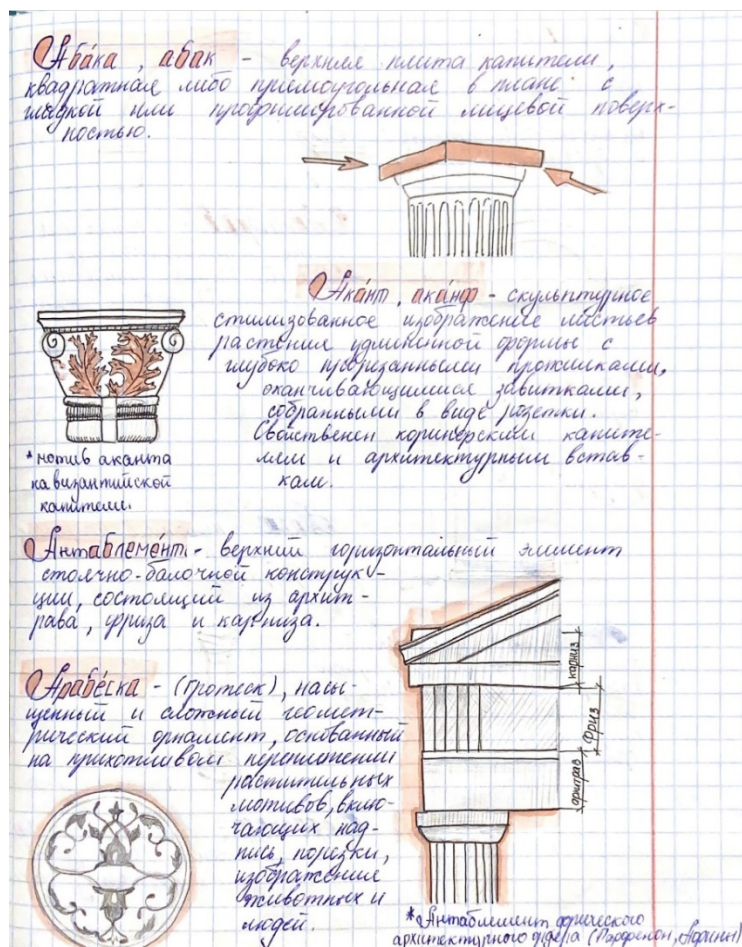 Аба́ка, абак – верхняя плита капители,
квадратная либо прямоугольная в плане с
гладкой или профилированной лицевой поверх-
ностью.
Ака́нт, ака́нф – скульптурное
стилизованное изображение листьев
растения удлиненной формы с
глубоко прорезанными прожилками,
оканчивающимися завитками,
собранными в виде розетки.
Свойственен коринфским капите-
лям и архитектурным встав-
кам.
*мотив аканта
на византийской
капители.
Антаблеме́нт – верхний горизонтальный элемент
стоечно-балочной конструк-
ции, состоящий из архит-
рава, фриза и карниза.
Арабе́ска – (гротеск), насы-
щенный и сложный геомет-
рический орнамент, основанный
на прихотливом переплетении
растительных
мотивов, вклю-
чающих над-
пись, порезки,
изображения
животных и
людей.
карниз
фриз
архитрав
*Антаблемент дорического
архитектурного ордера (Парфенон, Афины)